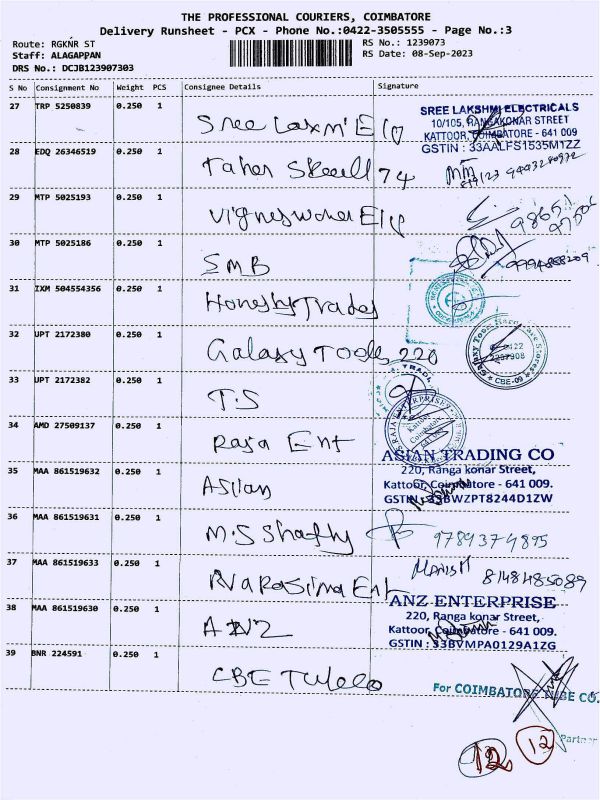 THE PROFESSIONAL COURIERS, COIMBATORE
Delivery Runsheet - PCX - Phone No.:0422-3505555 - Page No.:3
Route: RGKNR ST
RS No.: 1239073
Staff: ALAGAPPAN
RS Date: 08-Sep-2023
DRS No.: DCJB123907303
S No Consignment No Weight PCS Consignee Details Signature
27 TRP 5250839 0.250 1 Sree Laxmi
SREE LAKSHMI ELECTRICALS
10/105, RANGAKONAR STREET
KATTOOR, COIMBATORE - 641 009
GSTIN : 33AALFS1535M1ZZ
28 EDQ 26346519 0.250 1 Taher 74
29 MTP 5025193 0.250 1
30 MTP 5025186 0.250 1 SMB
31 IXM 504554356 0.250 1 Honesty Trades
32 UPT 2172380 0.250 1 Galaxy Tools 220
CBE-09
33 UPT 2172382 0.250 1 T.S
34 AMD 27509137 0.250 1 Raja Ent
RAJA ENTERPRISES
Kattoor
Coimbatore
ASIAN TRADING CO
220, Ranga konar Street,
35 MAA 861519632 0.250 1 Asian
Kattoor, Coimbatore - 641 009.
GSTIN : 33BWZPT8244D1ZW
36 MAA 861519631 0.250 1 M.S 9789374895
37 MAA 861519633 0.250 1 Narasima Ent Manish 8148485089
ANZ ENTERPRISE
220, Ranga konar Street,
38 MAA 861519630 0.250 1 ANZ
Kattoor, Coimbatore - 641 009.
GSTIN : 33BVMPA0129A1ZG
39 BNR 224591 0.250 1 CBE
For COIMBATORE TUBE CO.
Partner
12 12